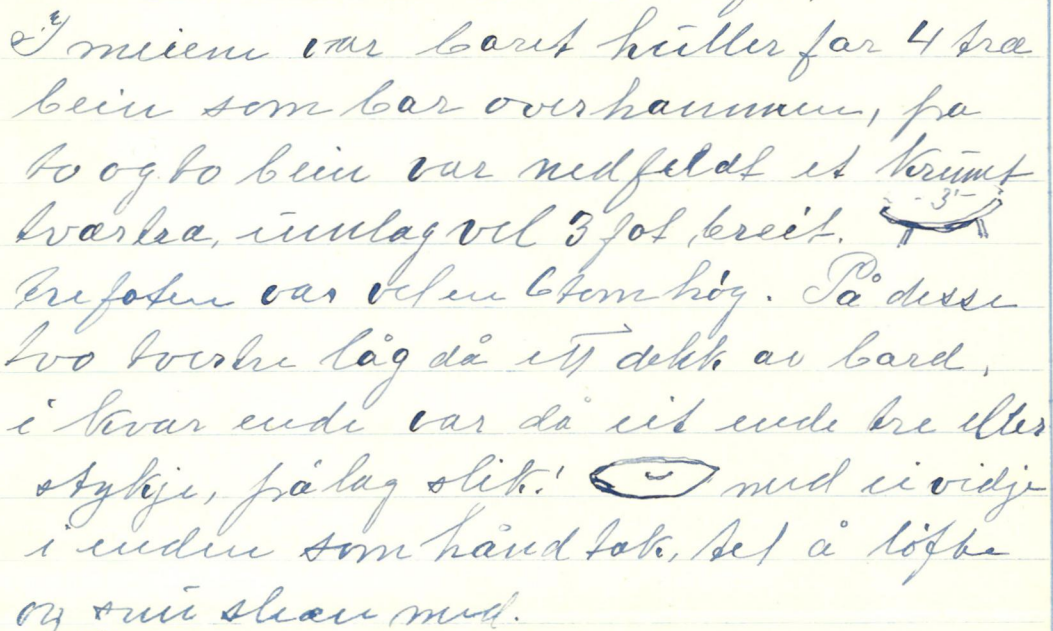 I meiene var boret huller for 4 træ
bein som bar overhammen, på
to og to bein var nedfeldt et krumt
tværtræ, umlag vel 3 fot breit. - 3' -
trefoten var vel en 6 tom høg. På desse
tvo tvertre låg då ett dekk av bord,
i kvar ende var då eit ende tre eller
stykje, pålag slik! med ei vidje
i enden som håndtak, tel å løfte
og snu slæen med.